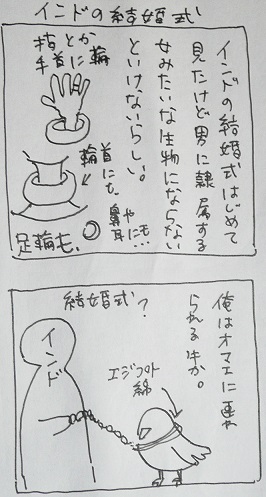 インドの結婚式
インドの結婚式はじめて
見たけど男に隷属する
女みたいな生物にならない
といけないらしい。
指とか
手首に輪
輪首
にも。
鼻や
耳にも…
足輪も、
俺はオマエに
られる件か。
結婚式？
インド
エジプト
綿